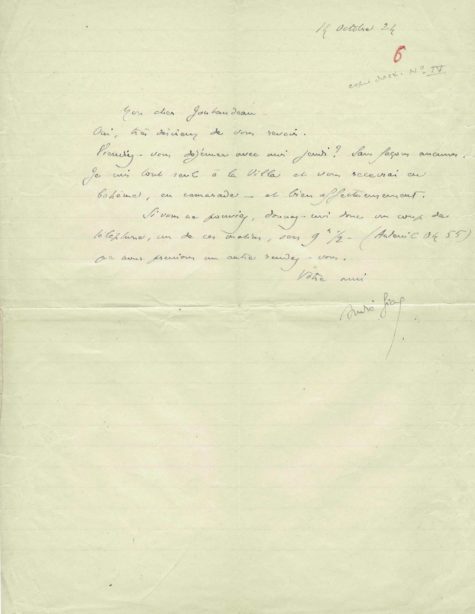 14 Octobre 24
6
N° IV
Mon cher Jouhandeau
Oui, très désireux de vous revoir.
Viendriez-vous déjeuner avec moi jeudi? Sans façons aucunes.
Je suis tout seul à la Villa et vous recevrai en
bohème, en camarade — et bien affectueusement.
Si vous ne pouviez, donnez-moi donc un coup de
téléphone, un de ces matins, vers 9 h ½ — (Auteuil 04 55)
que nous prenions un autre rendez-vous.
Votre ami
André Gide